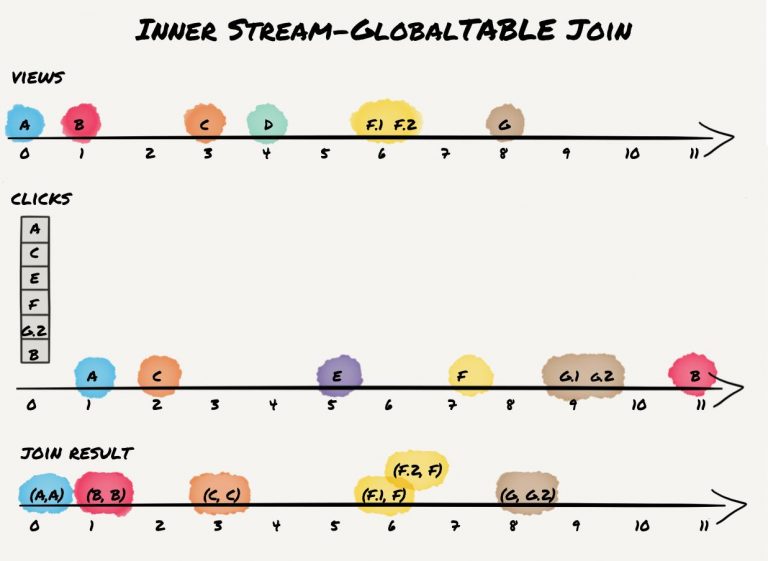 INNER STREAM-GLOBALTABLE JOIN
VIEWS
A B C D F.1 F.2 G
0 1 2 3 4 5 6 7 8 9 10 11
CLICKS
A
C
E
F
G.2
B
A C E F G.1 G.2 B
0 1 2 3 4 5 6 7 8 9 10 11
JOIN RESULT
(F.2, F)
(A,A) (B, B) (C, C) (F.1, F) (G, G.2)
0 1 2 3 4 5 6 7 8 9 10 11